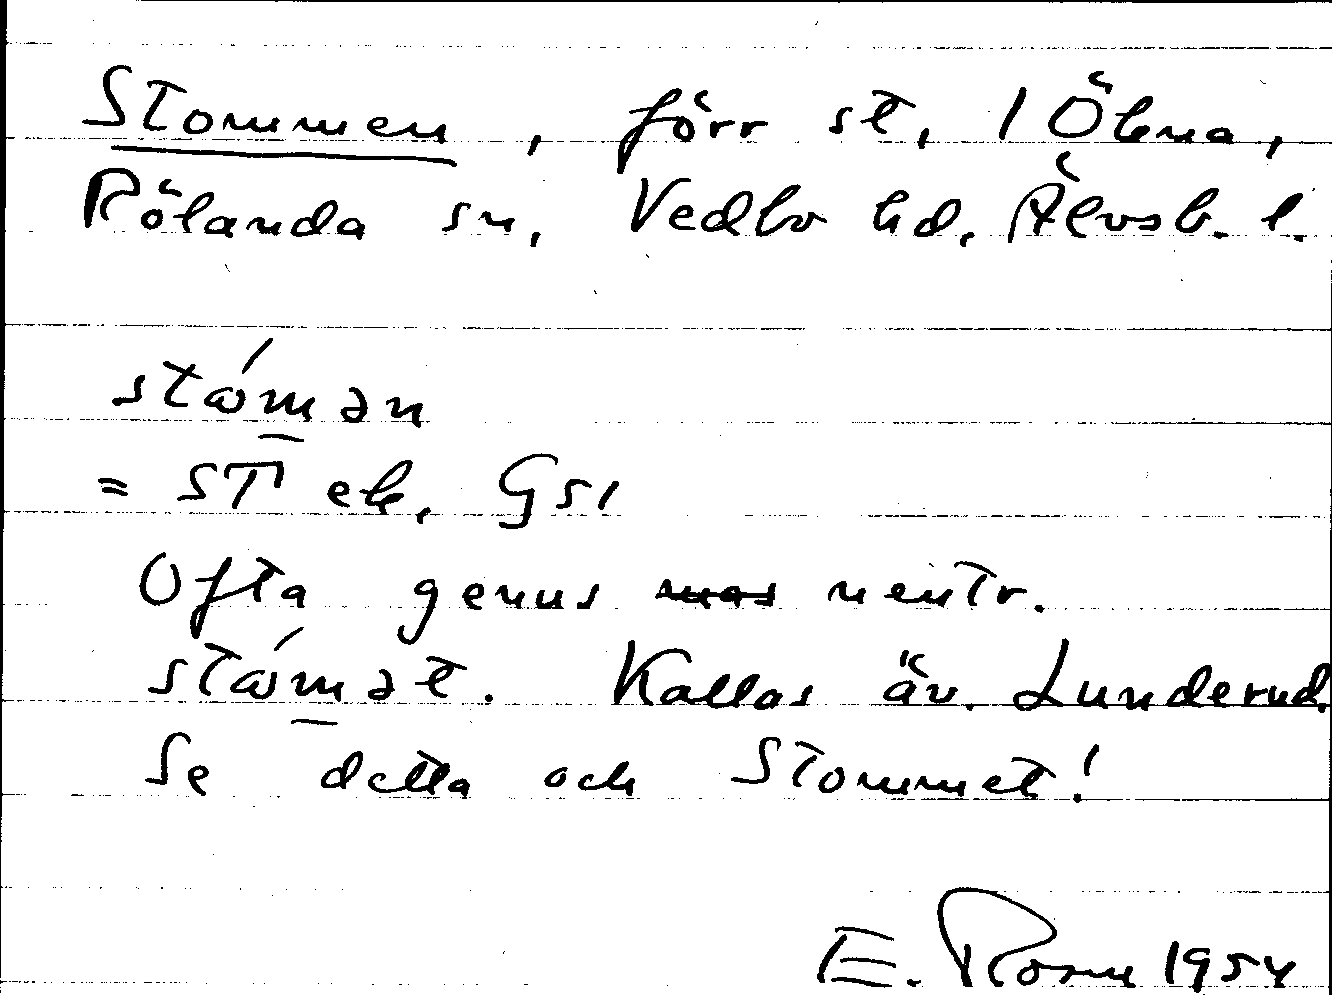 Stommen, förr st, i Ökna,
Rölanda sn, Vedbo hd. Älvsb. l.
stómən
= ST ek, Gs1
Ofta genus mas neutr.
stómət. Kallas äv. Lunderud.
Se detta och Stommet!
E. 1954